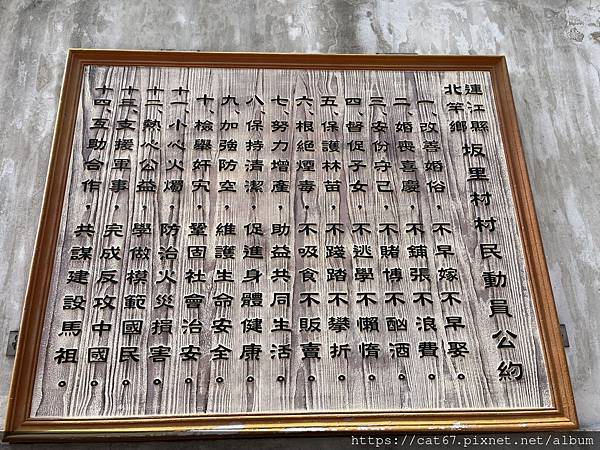 連江縣
北竿鄉
坂里村村民動員公約
一、改善婚俗，不早嫁不早娶。
二、婚喪喜慶，不鋪張不浪費。
三、安份守己，不賭博不酗酒。
四、督促子女，不逃學不懶惰。
五、保護林苗，不踐踏不攀折。
六、根絕煙毒，不吸食不販賣。
七、努力增產，助益共同生活。
八、保持清潔，促進身體健康。
九、加強防空，維護生命安全。
十、檢舉奸宄，鞏固社會治安。
十一、小心火燭，防治火災損害。
十二、熱心公益，學做模範國民。
十三、支援軍事，完成反攻中國。
十四、互助合作，共謀建設馬祖。
https://cat67.pixnet.net/album